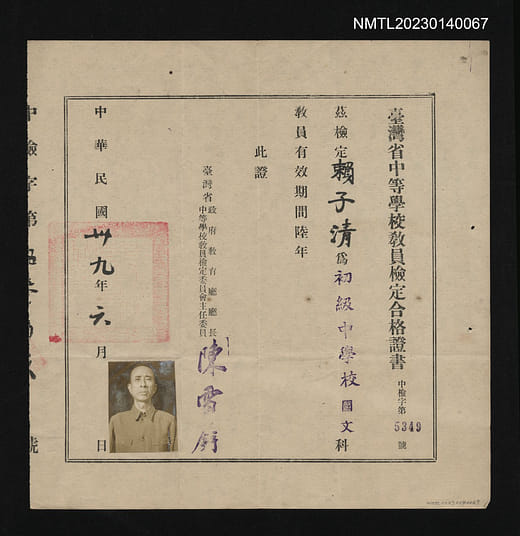 NMTL20230140067
臺灣省中等學校教員檢定合格證書
中檢字第5349號
茲檢定賴子清為初級中學校國文科
教員有效期間陸年
此證
臺灣省政府教育廳廳長
中等學校教員檢定委員會主任委員
陳雪屏
中華民國卅九年六月 日
中檢字第
號